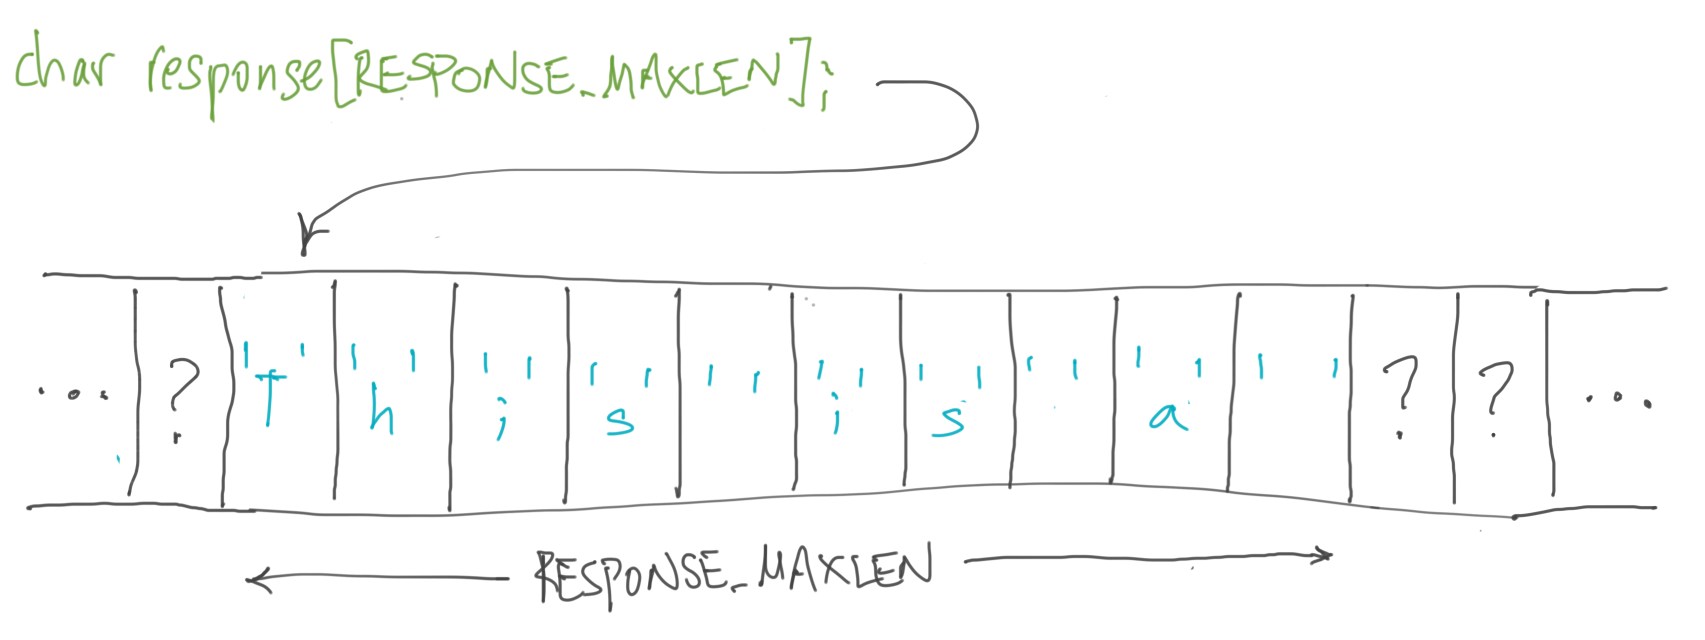 char response[RESPONSE_MAXLEN];
... ? 'T' 'h' 'i' 's' ' ' 'i' 's' ' ' 'a' ' ' ? ? ...
RESPONSE_MAXLEN